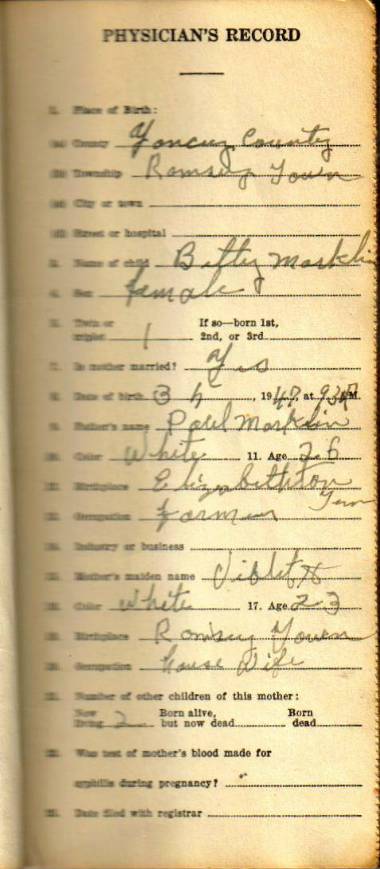 PHYSICIAN'S RECORD
1. Place of Birth:
(a) County Yancey County
(b) Township Ramsey Town
(c) City or town
(d) Street or hospital
3. Name of child Betty Marklin
4. Sex female
5. Twin or triplet 1 If so—born 1st, 2nd, or 3rd
7. Is mother married? Yes
8. Date of birth 3 1947, at 930 M.
9. Father's name Paul Marklin
10. Color White 11. Age 26
12. Birthplace Elizabethton Tenn
13. Occupation Farmer
14. Industry or business
15. Mother's maiden name Violet
16. Color White 17. Age 23
18. Birthplace Romsey Town
19. Occupation house Wife
21. Number of other children of this mother:
Now living 2 Born alive, but now dead Born dead
22. Was test of mother's blood made for
syphilis during pregnancy?
23. Date filed with registrar